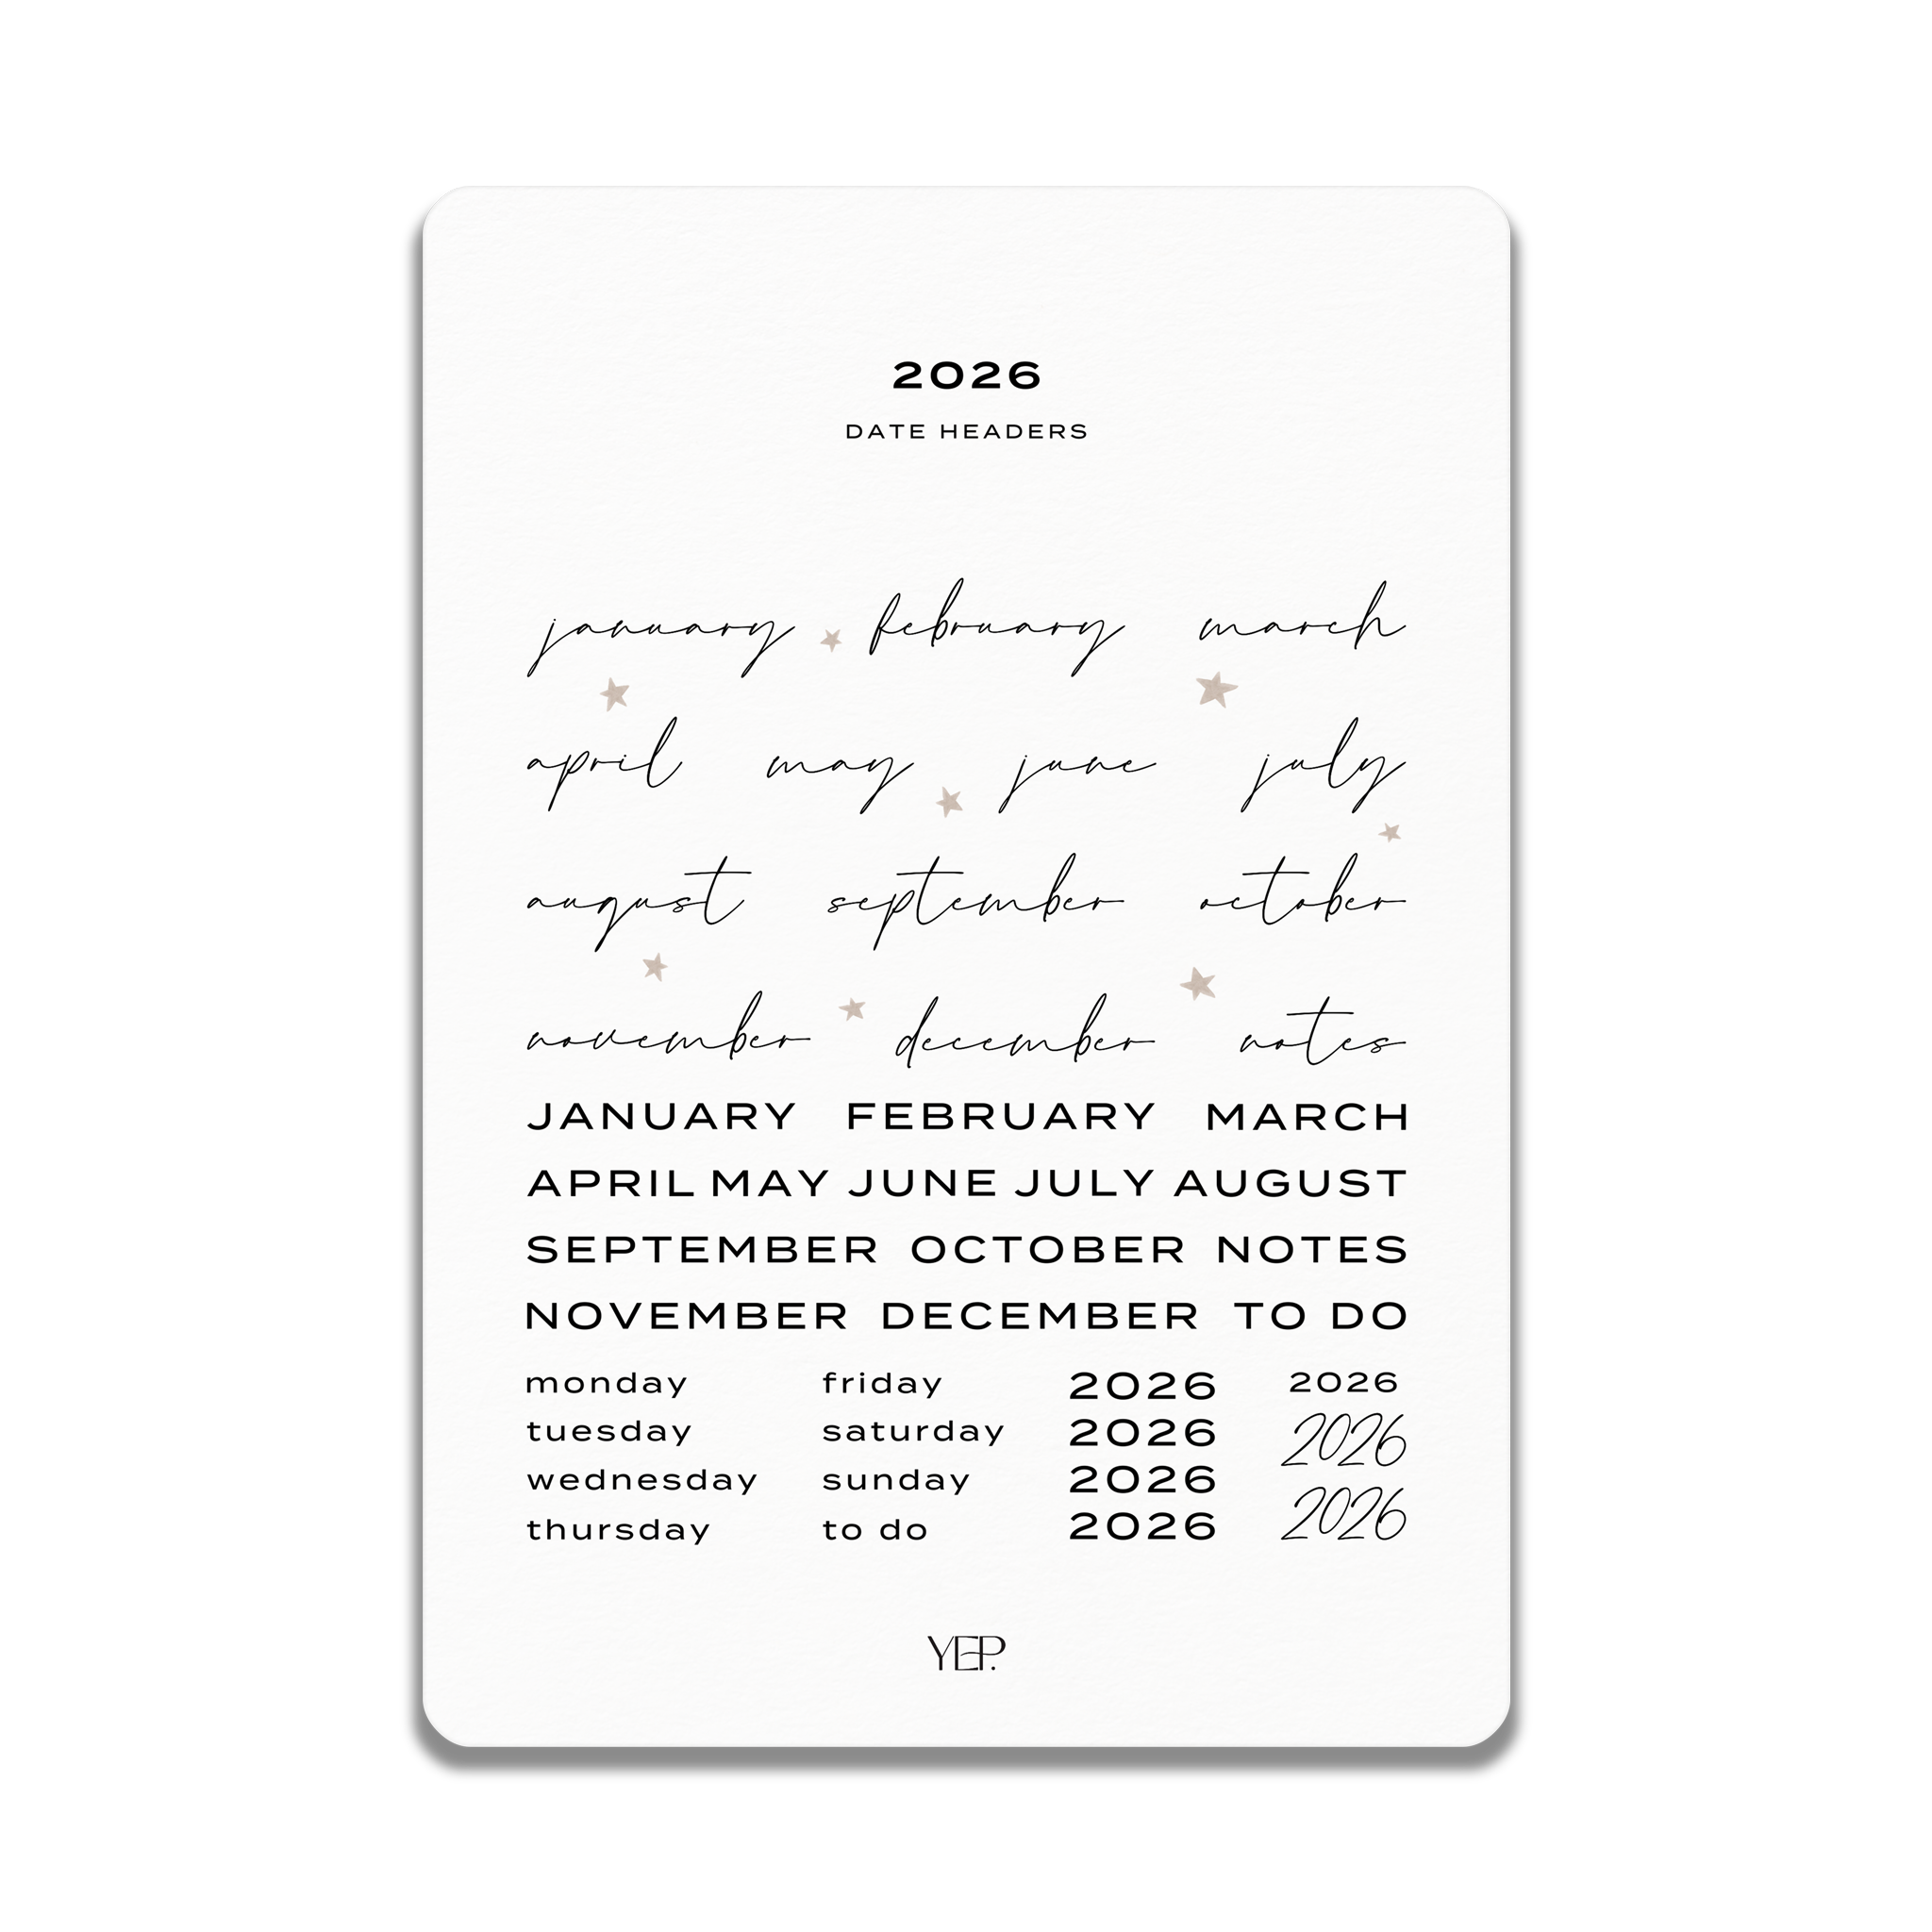 2026
DATE HEADERS
january february march
april may june july
august september october
november december notes
JANUARY FEBRUARY MARCH
APRIL MAY JUNE JULY AUGUST
SEPTEMBER OCTOBER NOTES
NOVEMBER DECEMBER TO DO
monday friday 2026 2026
tuesday saturday 2026 2026
wednesday sunday 2026 2026
thursday to do 2026
YEP.